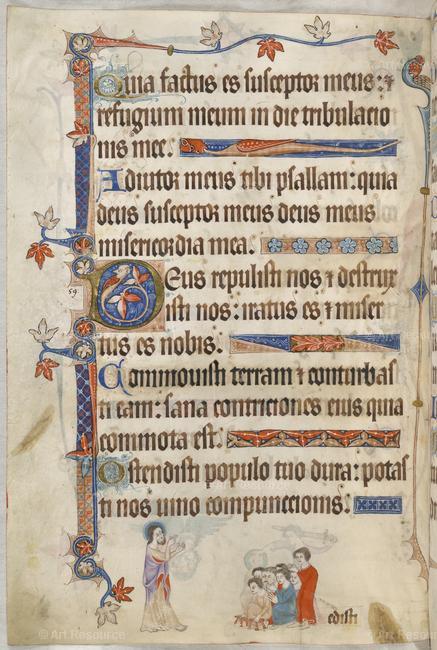 Quia factus es susceptor meus: ⁊
refugium meum in die tribulacio
nis mee.
Adiutor meus tibi psallam: quia
deus susceptor meus deus meus
misericordia mea.
59.
Deus repulisti nos ⁊ destrux
isti nos: iratus es ⁊ miser
tus es nobis.
Commouisti terram ⁊ conturbas
ti eam: sana contriciones eius quia
commota est.
Ostendisti populo tuo dura: potas
ti nos uino compunccionis.
edisti
© Art Resource
© Art Resource